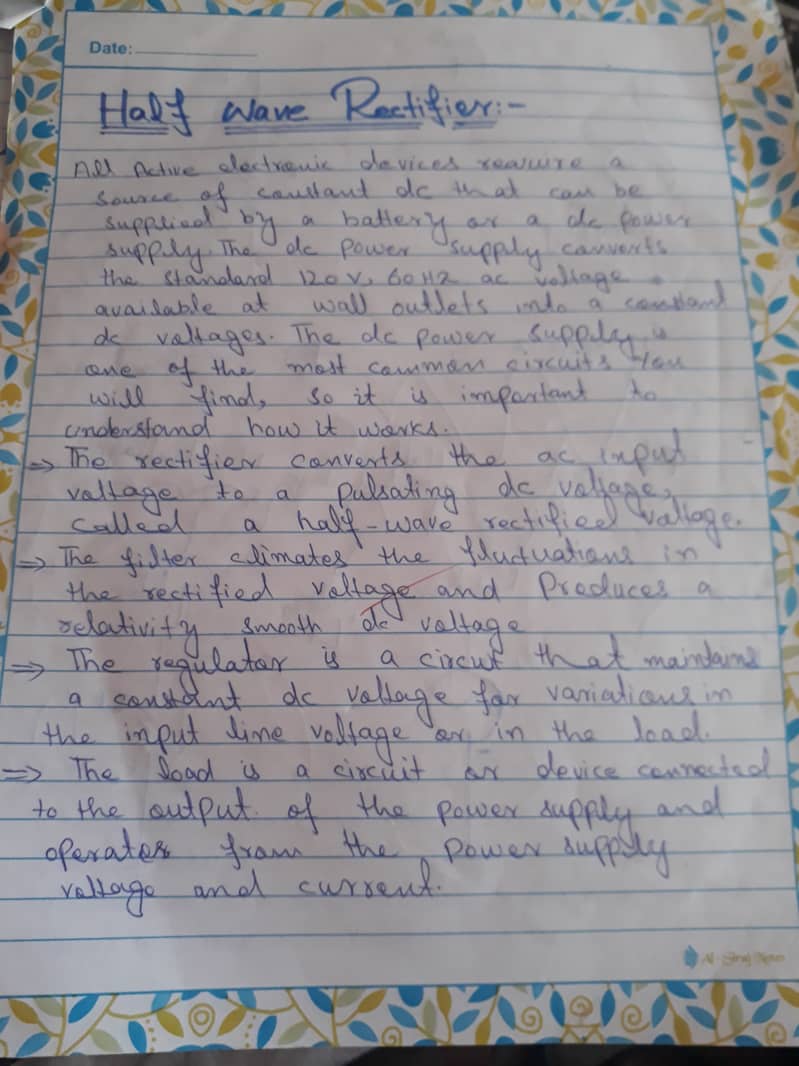 Date:
Half Wave Rectifier:-
All Active electronic devices reauire a
source of constant dc that can be
supplied by a battery or a dc power
supply. The dc power supply converts
the standard 120 V, 60 HZ ac voltage
available at wall outlets into a constant
dc voltages. The dc power supply is
one of the most common circuits You
will find, so it is important to
understand how it works.
⇒ The rectifier converts the ac input
voltage to a pulsating dc voltage,
called a half-wave rectified voltage.
⇒ The filter elimates the fluctuations in
the rectified voltage and Produces a
relativity smooth dc voltage
⇒ The regulator is a circut that maintains
a constant dc voltage for variations in
the input line voltage or in the load.
⇒ The load is a circuit or device connected
to the output of the power supply and
operates from the power supply
voltage and current.